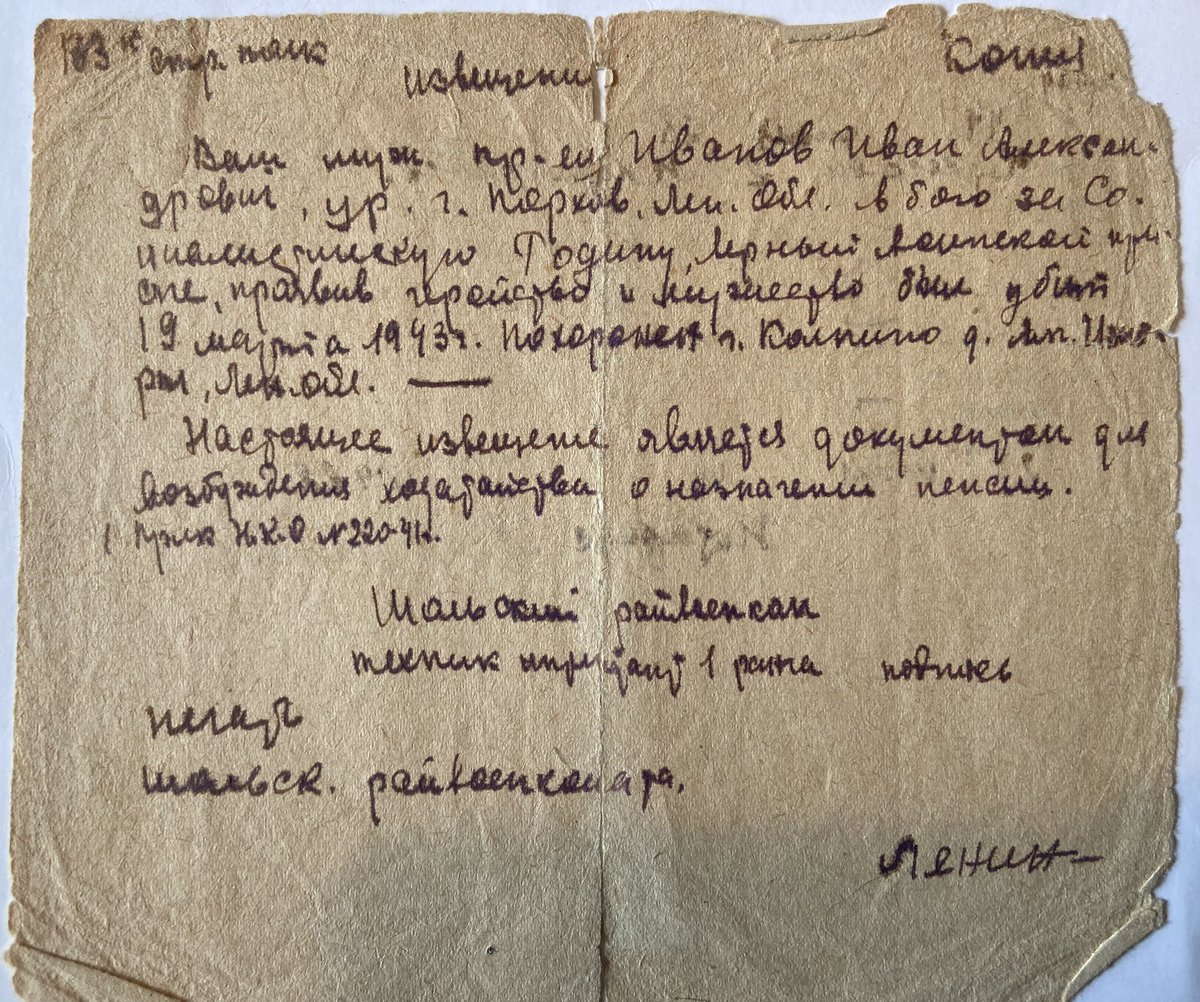 103 й стр. полк извещение Копия
Ваш муж. кр-ец Иванов Иван Алексан-
дрович, ур. г. Порхов, Лен. Обл. в бою за Со-
циалистическую Родину, верный воинской при-
сяге, проявив геройство и мужество был убит
19 марта 1943 г. Похоронен г. Колпино д. Ям. Ижо-
ры, Лен. обл. —
Настоящее извещение является документом для
возбуждения ходатайства о назначении пенсии.
Пр-к Н.К.О №220-41г.
Шальский райвоенком
техник интендант 1 ранга подпись
печать
шальск. райвоенкомата.